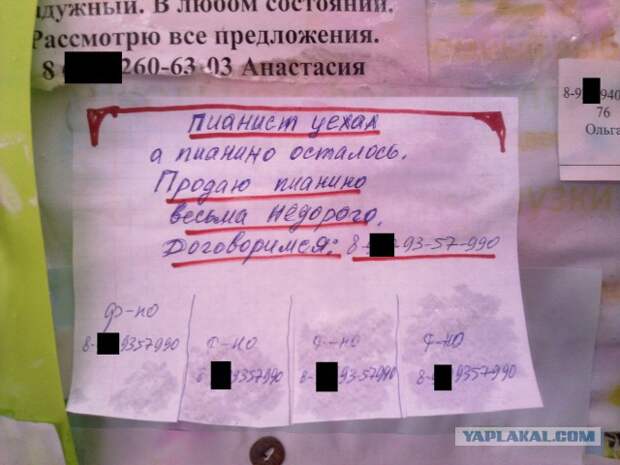 дужный. В любом состоянии.
Рассмотрю все предложения.
8 260-63-03 Анастасия
8-9 940
76
Ольга
Пианист уехал
а пианино осталось.
Продаю пианино
весьма недорого.
Договоримся: 8- -93-57-990
ф-но
8- 9357990
ф-но
8 9357990
ф-но
8- 93-57-990
ф-но
8- 9357990
YAPLAKAL.COM